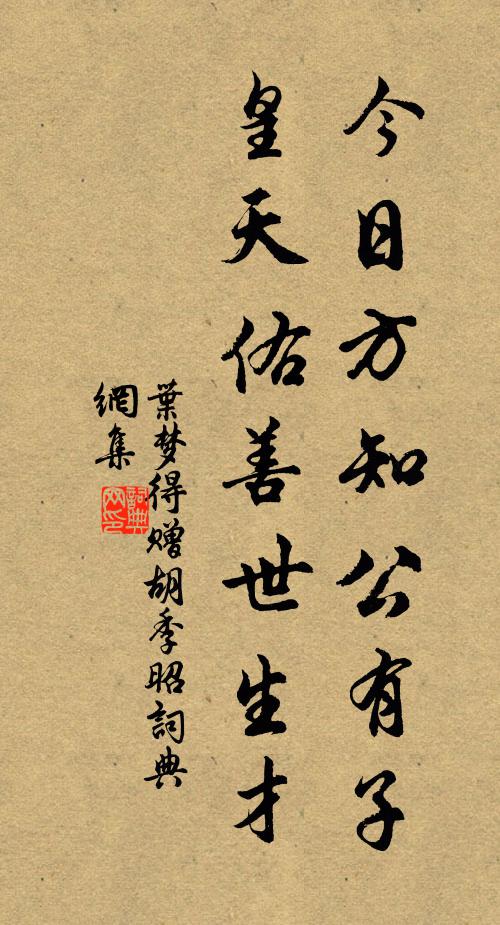 今日方知公有子
皇天佑善世生才
葉梦得贈胡季昭詞典
網集
詞典
网印